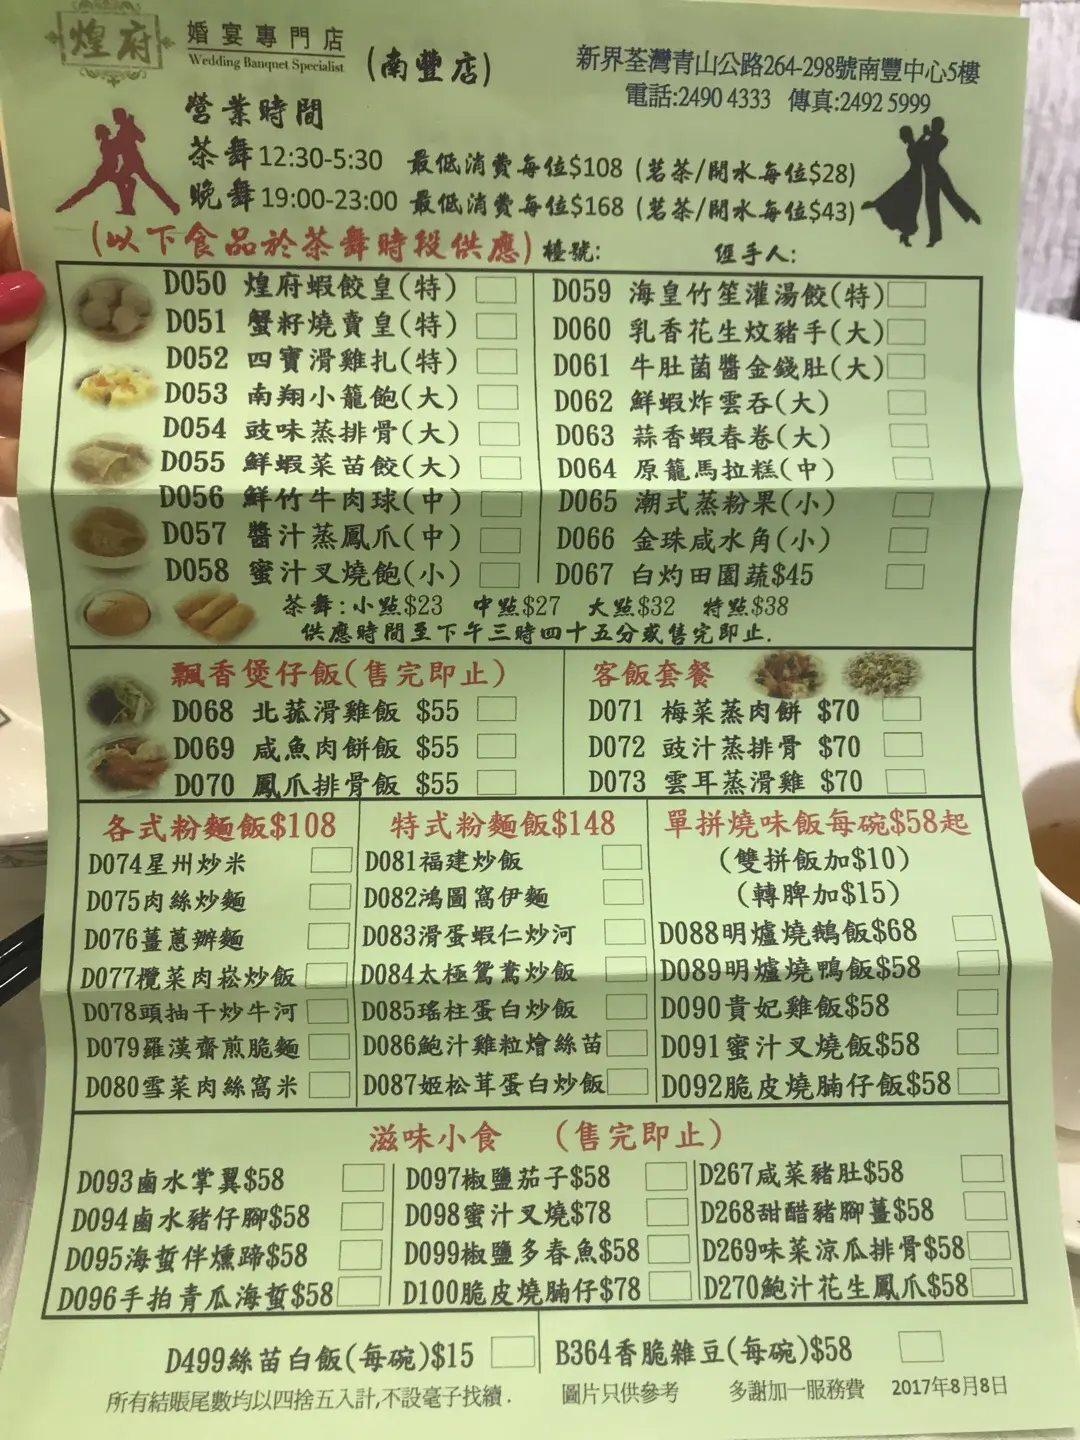 煌府
婚宴專門店
Wedding Banquet Specialist
(南豐店)
新界荃灣青山公路264-298號南豐中心5樓
電話:2490 4333 傳真:2492 5999
營業時間
茶舞12:30-5:30 最低消費每位$108 (茗茶/開水每位$28)
晚舞19:00-23:00 最低消費每位$168 (茗茶/開水每位$43)
(以下食品於茶舞時段供應) 檯號: 經手人:
D050 煌府蝦餃皇(特)
D051 蟹籽燒賣皇(特)
D052 四寶滑雞扎(特)
D053 南翔小籠飽(大)
D054 豉味蒸排骨(大)
D055 鮮蝦菜苗餃(大)
D056 鮮竹牛肉球(中)
D057 醬汁蒸鳳爪(中)
D058 蜜汁叉燒飽(小)
D059 海皇竹笙灌湯餃(特)
D060 乳香花生炆豬手(大)
D061 牛肚菌醬金錢肚(大)
D062 鮮蝦炸雲吞(大)
D063 蒜香蝦春卷(大)
D064 原籠馬拉糕(中)
D065 潮式蒸粉果(小)
D066 金珠咸水角(小)
D067 白灼田園蔬$45
茶舞:小點$23 中點$27 大點$32 特點$38
供應時間至下午三時四十五分或售完即止.
飄香煲仔飯(售完即止)
D068 北菰滑雞飯 $55
D069 咸魚肉餅飯 $55
D070 鳳爪排骨飯 $55
客飯套餐
D071 梅菜蒸肉餅 $70
D072 豉汁蒸排骨 $70
D073 雲耳蒸滑雞 $70
各式粉麵飯$108
D074星州炒米
D075肉絲炒麵
D076薑蔥辦麵
D077欖菜肉崧炒飯
D078頭抽干炒牛河
D079羅漢齋煎脆麵
D080雪菜肉絲窩米
特式粉麵飯$148
D081福建炒飯
D082鴻圖窩伊麵
D083滑蛋蝦仁炒河
D084太極鴛鴦炒飯
D085瑤柱蛋白炒飯
D086鮑汁雞粒燴絲苗
D087姬松茸蛋白炒飯
單拼燒味飯每碗$58起
(雙拼飯加$10)
(轉脾加$15)
D088明爐燒鵝飯$68
D089明爐燒鴨飯$58
D090貴妃雞飯$58
D091蜜汁叉燒飯$58
D092脆皮燒腩仔飯$58
滋味小食 (售完即止)
D093鹵水掌翼$58
D094鹵水豬仔腳$58
D095海蜇伴燻蹄$58
D096手拍青瓜海蜇$58
D097椒鹽茄子$58
D098蜜汁叉燒$78
D099椒鹽多春魚$58
D100脆皮燒腩仔$78
D267咸菜豬肚$58
D268甜醋豬腳薑$58
D269味菜涼瓜排骨$58
D270鮑汁花生鳳爪$58
D499絲苗白飯(每碗)$15
B364香脆雜豆(每碗)$58
所有結賬尾數均以四捨五入計,不設毫子找續. 圖片只供參考 多謝加一服務費 2017年8月8日